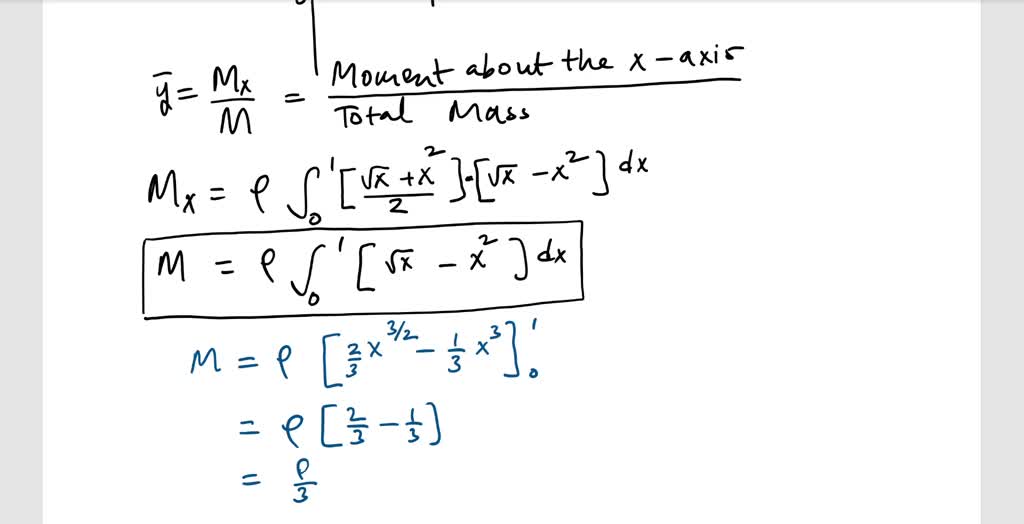 ȳ = Mx/M = Moment about the x-axis / Total Mass
Mx = ρ ∫₀¹ [(√x + x²)/2]·[√x − x²] dx
M = ρ ∫₀¹ [√x − x²] dx
M = ρ [2/3 x^(3/2) − 1/3 x³]₀¹
= ρ [2/3 − 1/3]
= ρ/3